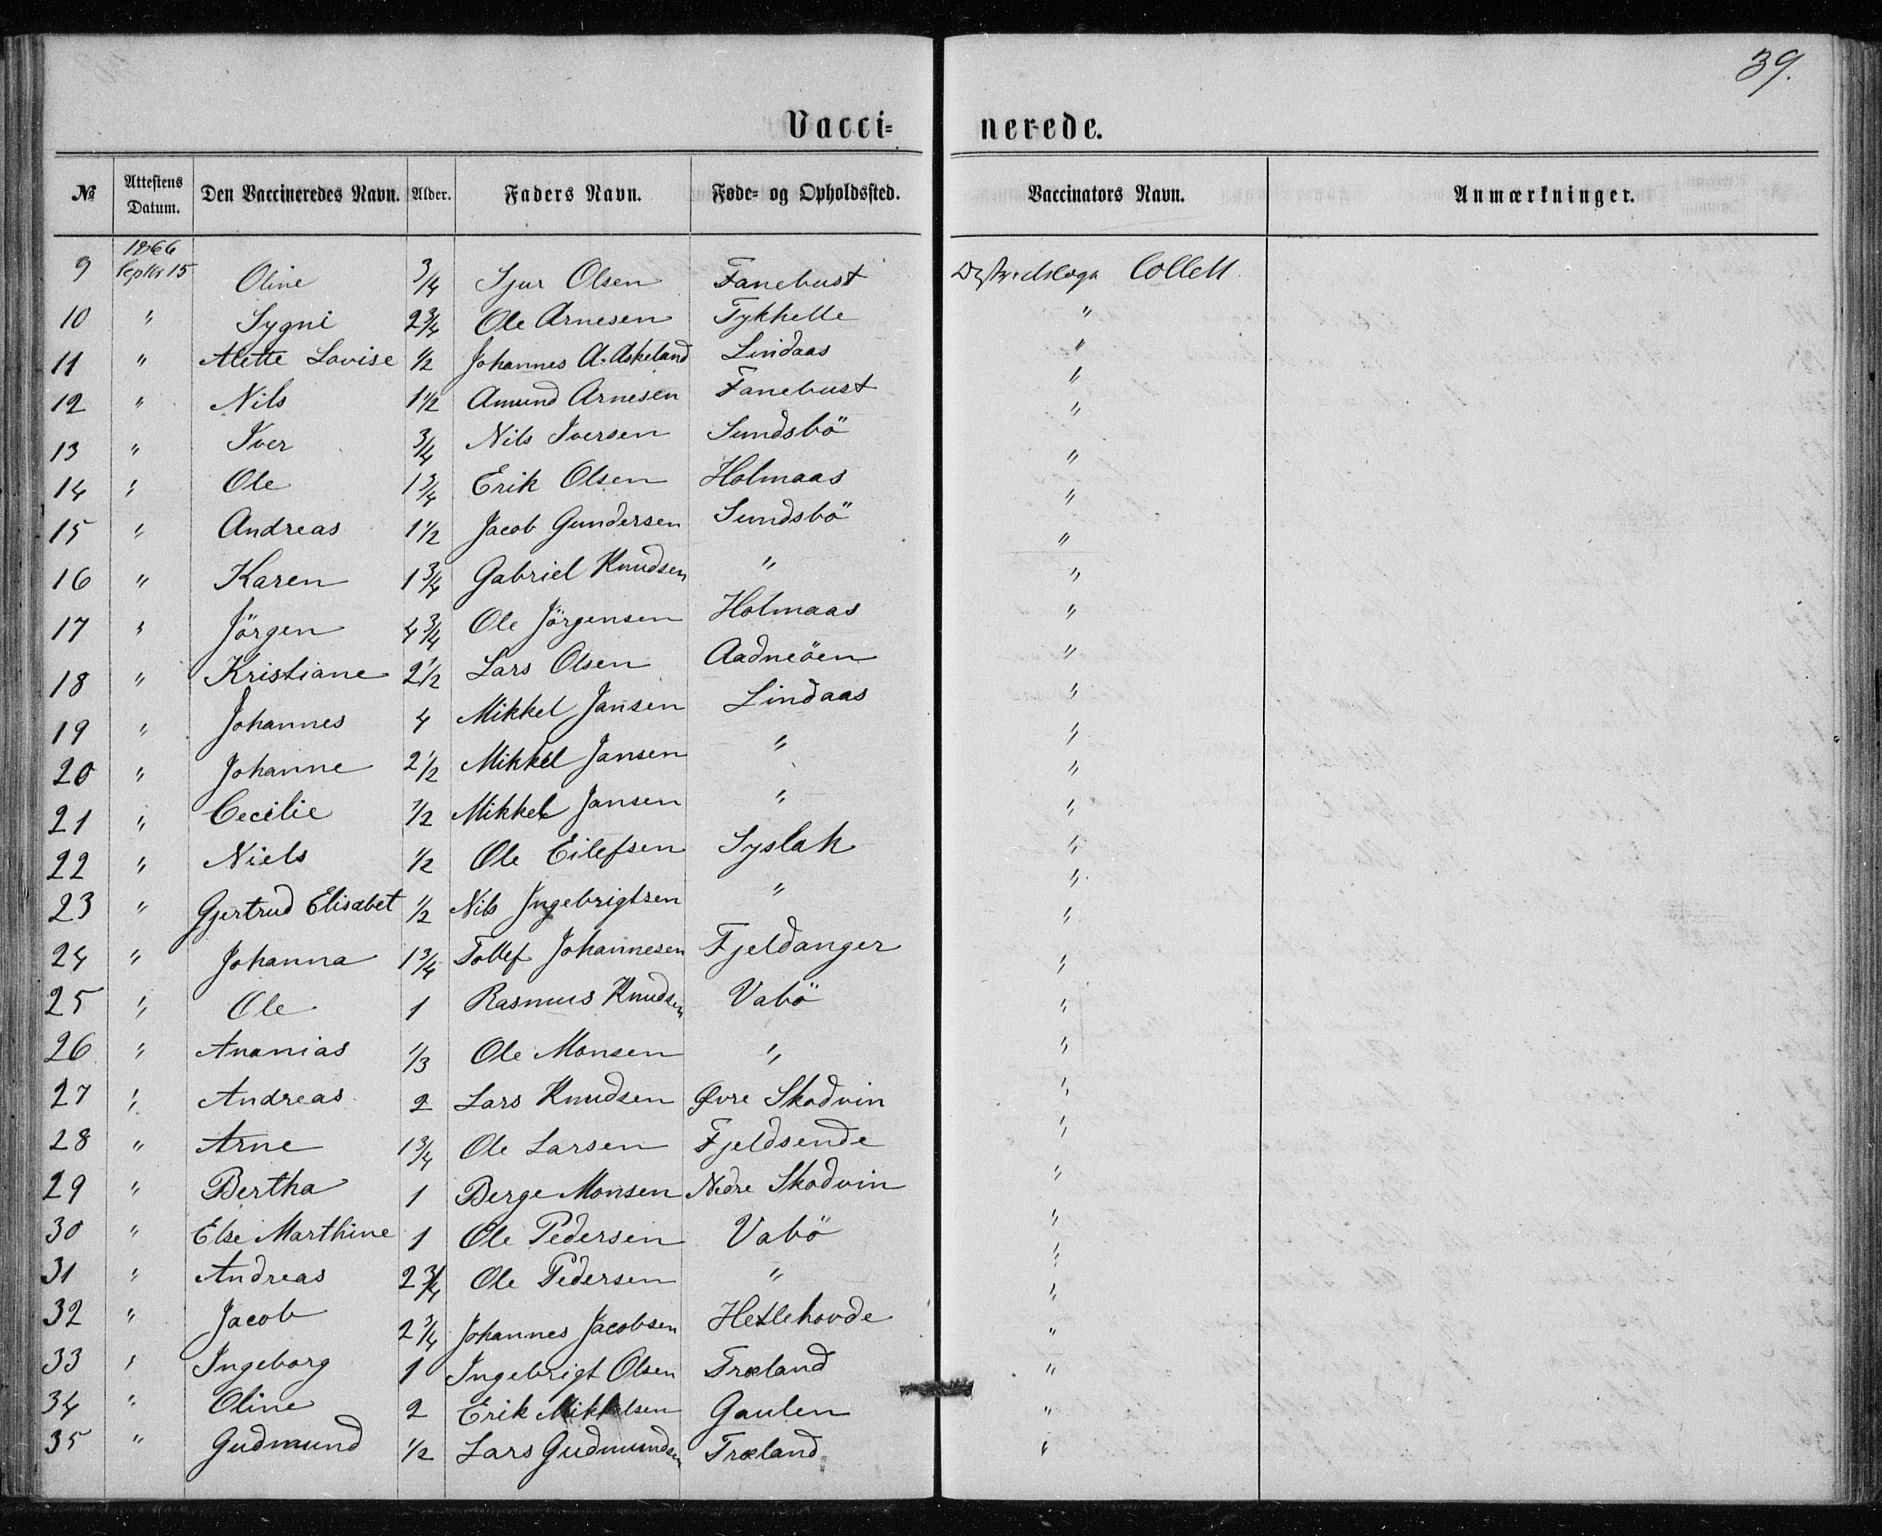 39.
Vacci= nerede.
№ Attestens Datum. Den Vaccineredes Navn. Alder. Faders Navn. Føde= og Opholdssted. Vaccinators Navn. Anmærkninger.
1866
9 Septbr 15 Oline 3/4 Sjur Olsen Fanebust Distrectslæge Collett
10 " Sygni 2 3/4 Ole Arnesen Tykhelle "
11 " Alette Lovise 1/2 Johannes A. Askeland Lindaas "
12 " Nils 1 1/2 Amund Arnesen Fanebust "
13 " Iver 3/4 Nils Iversen Sundsbö "
14 " Ole 1 3/4 Erik Olsen Holmaas "
15 " Andreas 1 1/2 Jacob Gundersen Sundsbö "
16 " Karen 1 3/4 Gabriel Knudsen " "
17 " Jörgen 4 3/4 Ole Jörgensen Holmaas "
18 " Kristiane 2 1/2 Lars Olsen Aadneöen "
19 " Johannes 4 Mikkel Jansen Lindaas "
20 " Johanne 2 1/2 Mikkel Jansen " "
21 " Cecilie 1/2 Mikkel Jansen " "
22 " Niels 1/2 Ole Eilefsen Syslak "
23 " Gjertrud Elisabet 1/2 Nils Ingebrigtsen " "
24 " Johanna 1 3/4 Tollef Johannesen Fjeldanger "
25 " Ole 1 Rasmus Knudsen Vabö "
26 " Ananias 1/3 Ole Monsen " "
27 " Andreas 2 Lars Knudsen Øvre Skodvin "
28 " Arne 1 3/4 Ole Larsen Fjeldsende "
29 " Bertha 1 Berge Monsen Nedre Skodvin "
30 " Else Marthine 1 Ole Pedersen Vabö "
31 " Andreas 2 3/4 Ole Pedersen " "
32 " Jacob 2 3/4 Johannes Jacobsen Hetlehovde "
33 " Ingeborg 1 Ingebrigt Olsen Træland "
34 " Oline 2 Erik Mikkelsen Gaulen "
35 " Gudmund 1/2 Lars Gudmundsen Træland "